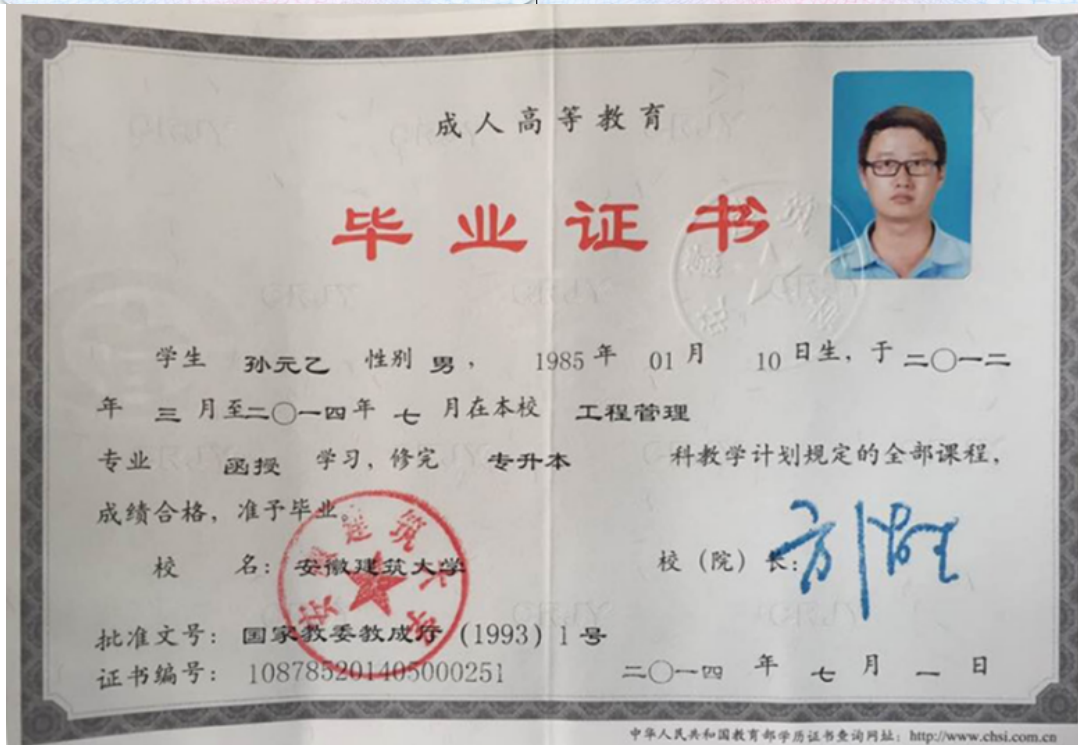 成人高等教育
毕业证书
学生 孙元乙 性别 男， 1985年 01月 10日生，于二〇一二
年 三 月至二〇一四年 七 月在本校 工程管理
专业 函授 学习，修完 专升本 科教学计划规定的全部课程，
成绩合格，准予毕业。
校 名：安徽建筑大学
校（院）长：
安徽建筑大学
批准文号：国家教委教成厅（1993）1号
证书编号：108785201405000251
二〇一四 年 七 月 一 日
中华人民共和国教育部学历证书查询网址：http://www.chsi.com.cn